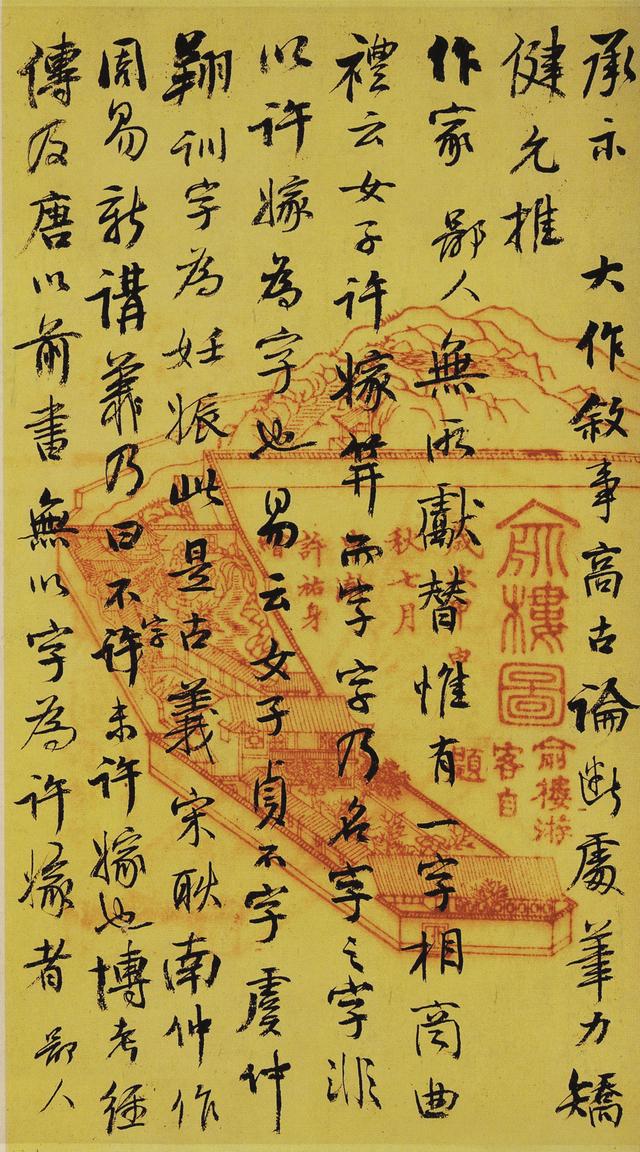 承示 大作敘事高古論斷處筆力矯
健允推
作家 鄙人無所獻替惟有一字相商曲
禮云女子許嫁笄而字字乃名字之字非
以許嫁為字也易云女子貞不字虞仲
翔訓字為妊娠此是古義宋耿南仲作
周易新講義乃曰不許字未許嫁也博考經
傳及唐以前書無以字為許嫁者 鄙人
俞樓圖
俞樓游
客自
題
秋七月
許祐身